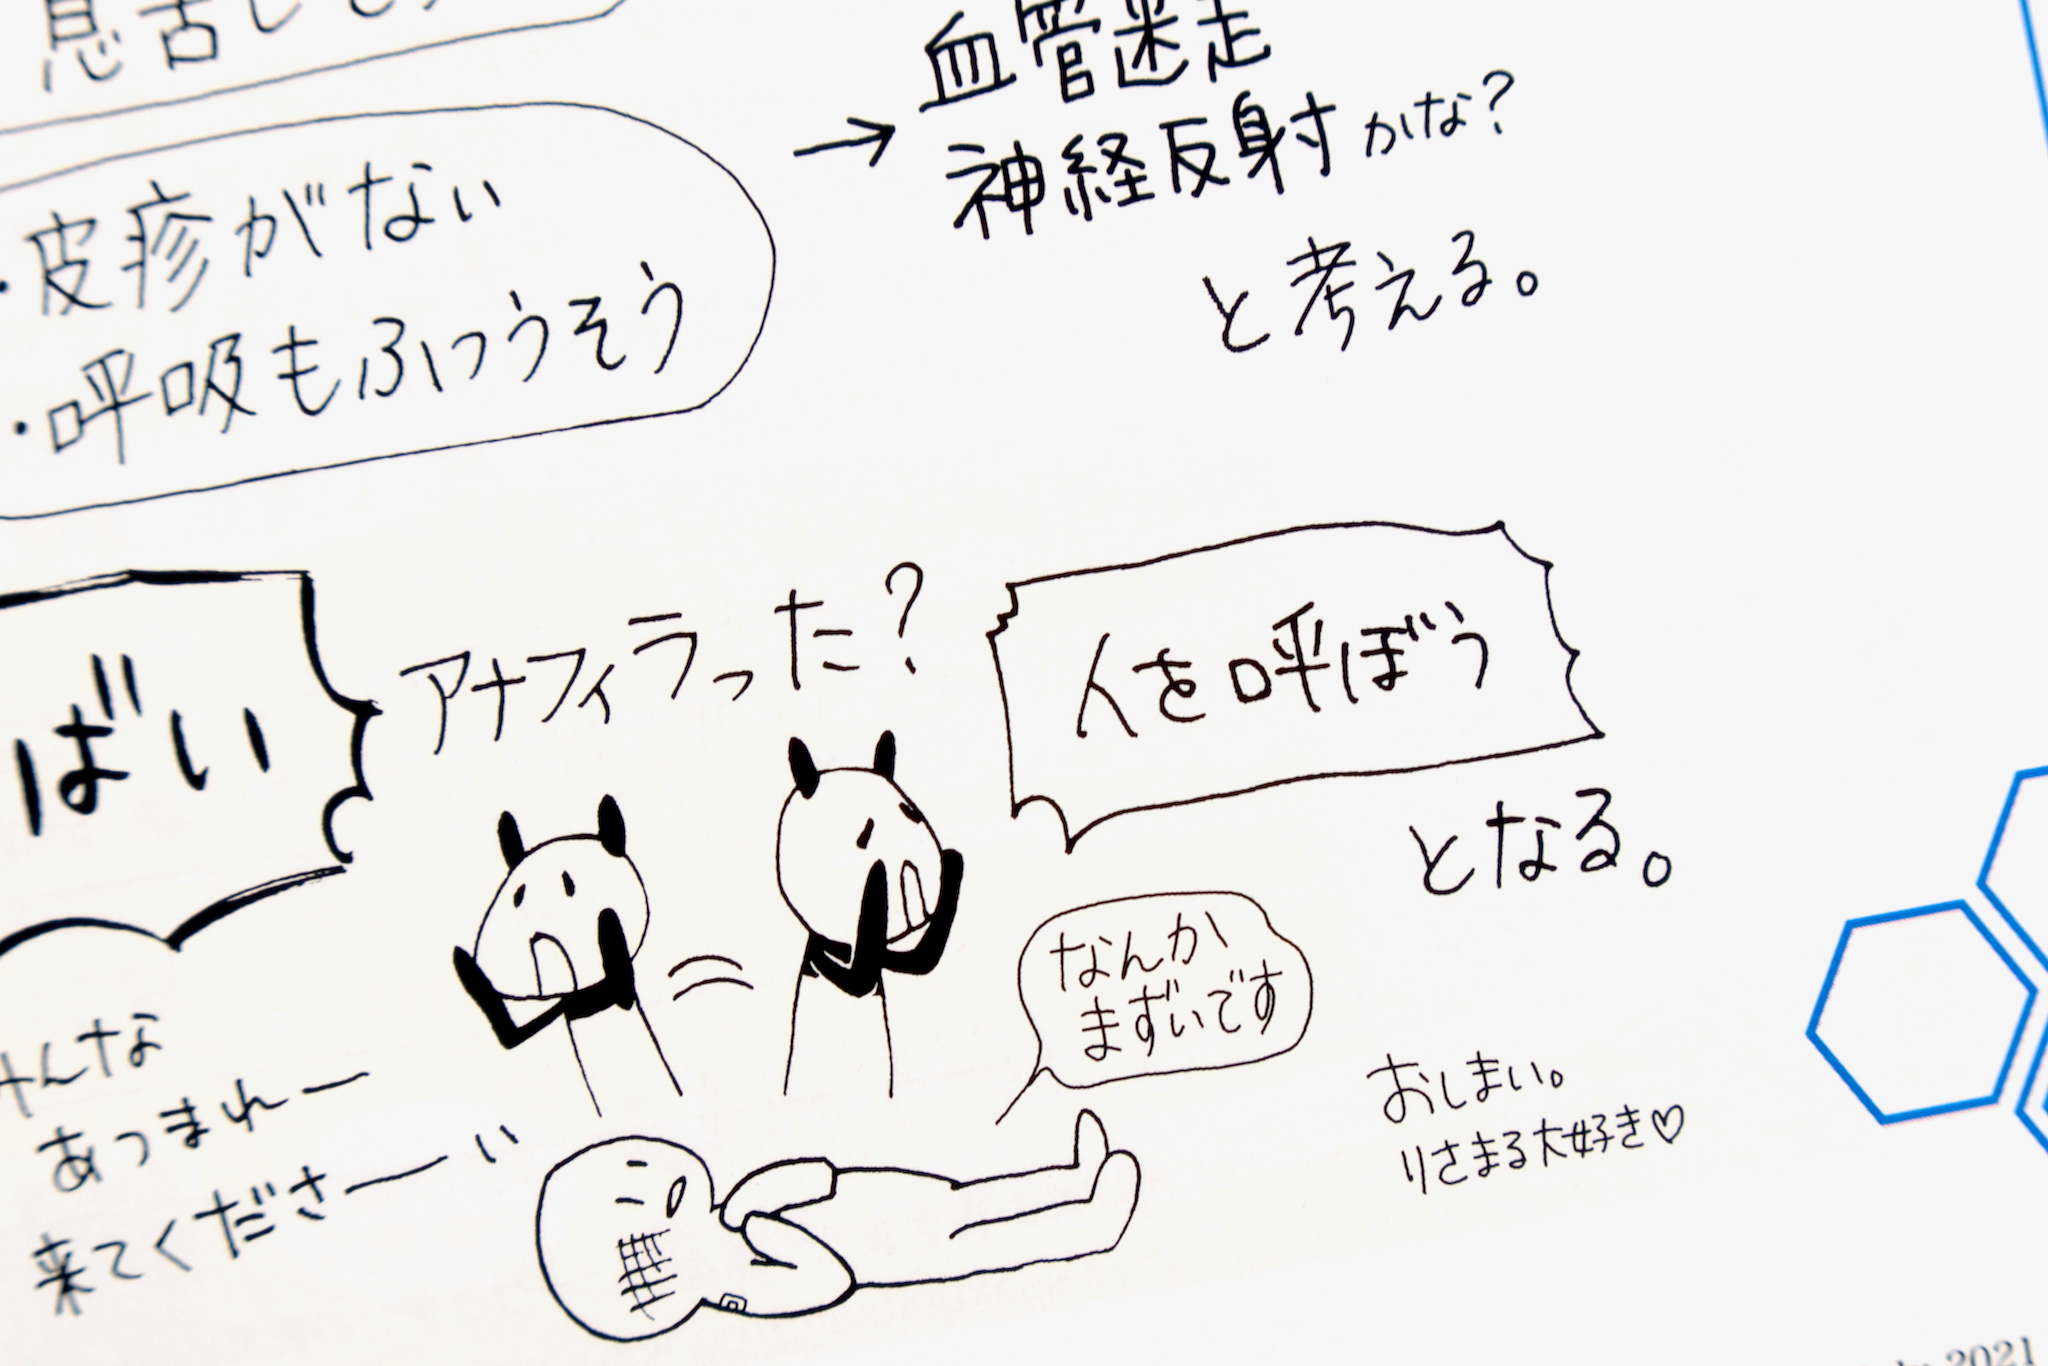 息苦しそう
→ 血管迷走
神経反射かな?
と考える。
・皮疹がない
・呼吸もふつうそう
ばい
アナフィラった?
人を呼ぼう
となる。
なんか
まずいです
みんな
あつまれー
来てくださーい
おしまい。
りさまる大好き♡
2021